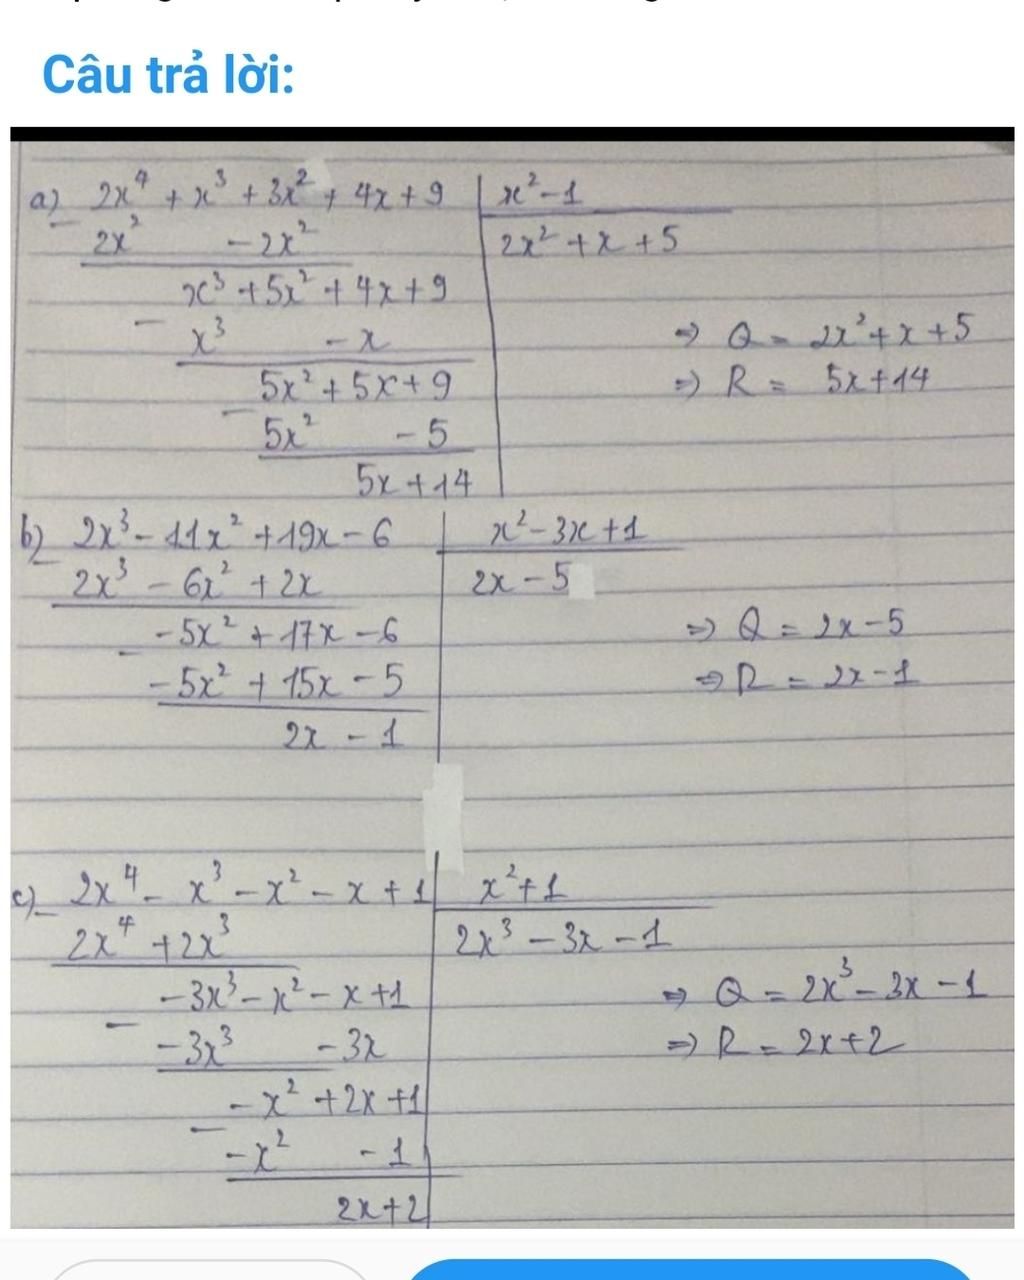 Câu trả lời:
a) 2x⁴ + x³ + 3x² + 4x + 9 | x² - 1
- 2x² - 2x² | 2x² + x + 5
x³ + 5x² + 4x + 9
- x³ - x
⇒ Q = 2x² + x + 5
5x² + 5x + 9
⇒ R = 5x + 14
- 5x² - 5
5x + 14
b) 2x³ - 11x² + 19x - 6 | x² - 3x + 1
- 2x³ - 6x² + 2x | 2x - 5
-5x² + 17x - 6
⇒ Q = 2x - 5
- -5x² + 15x - 5
⇒ R = 2x - 1
2x - 1
c) 2x⁴ - x³ - x² - x + 1 | x² + 1
- 2x⁴ + 2x³ | 2x³ - 3x - 1
-3x³ - x² - x + 1
⇒ Q = 2x³ - 3x - 1
- -3x³ - 3x
⇒ R = 2x + 2
-x² + 2x + 1
- -x² - 1
2x + 2